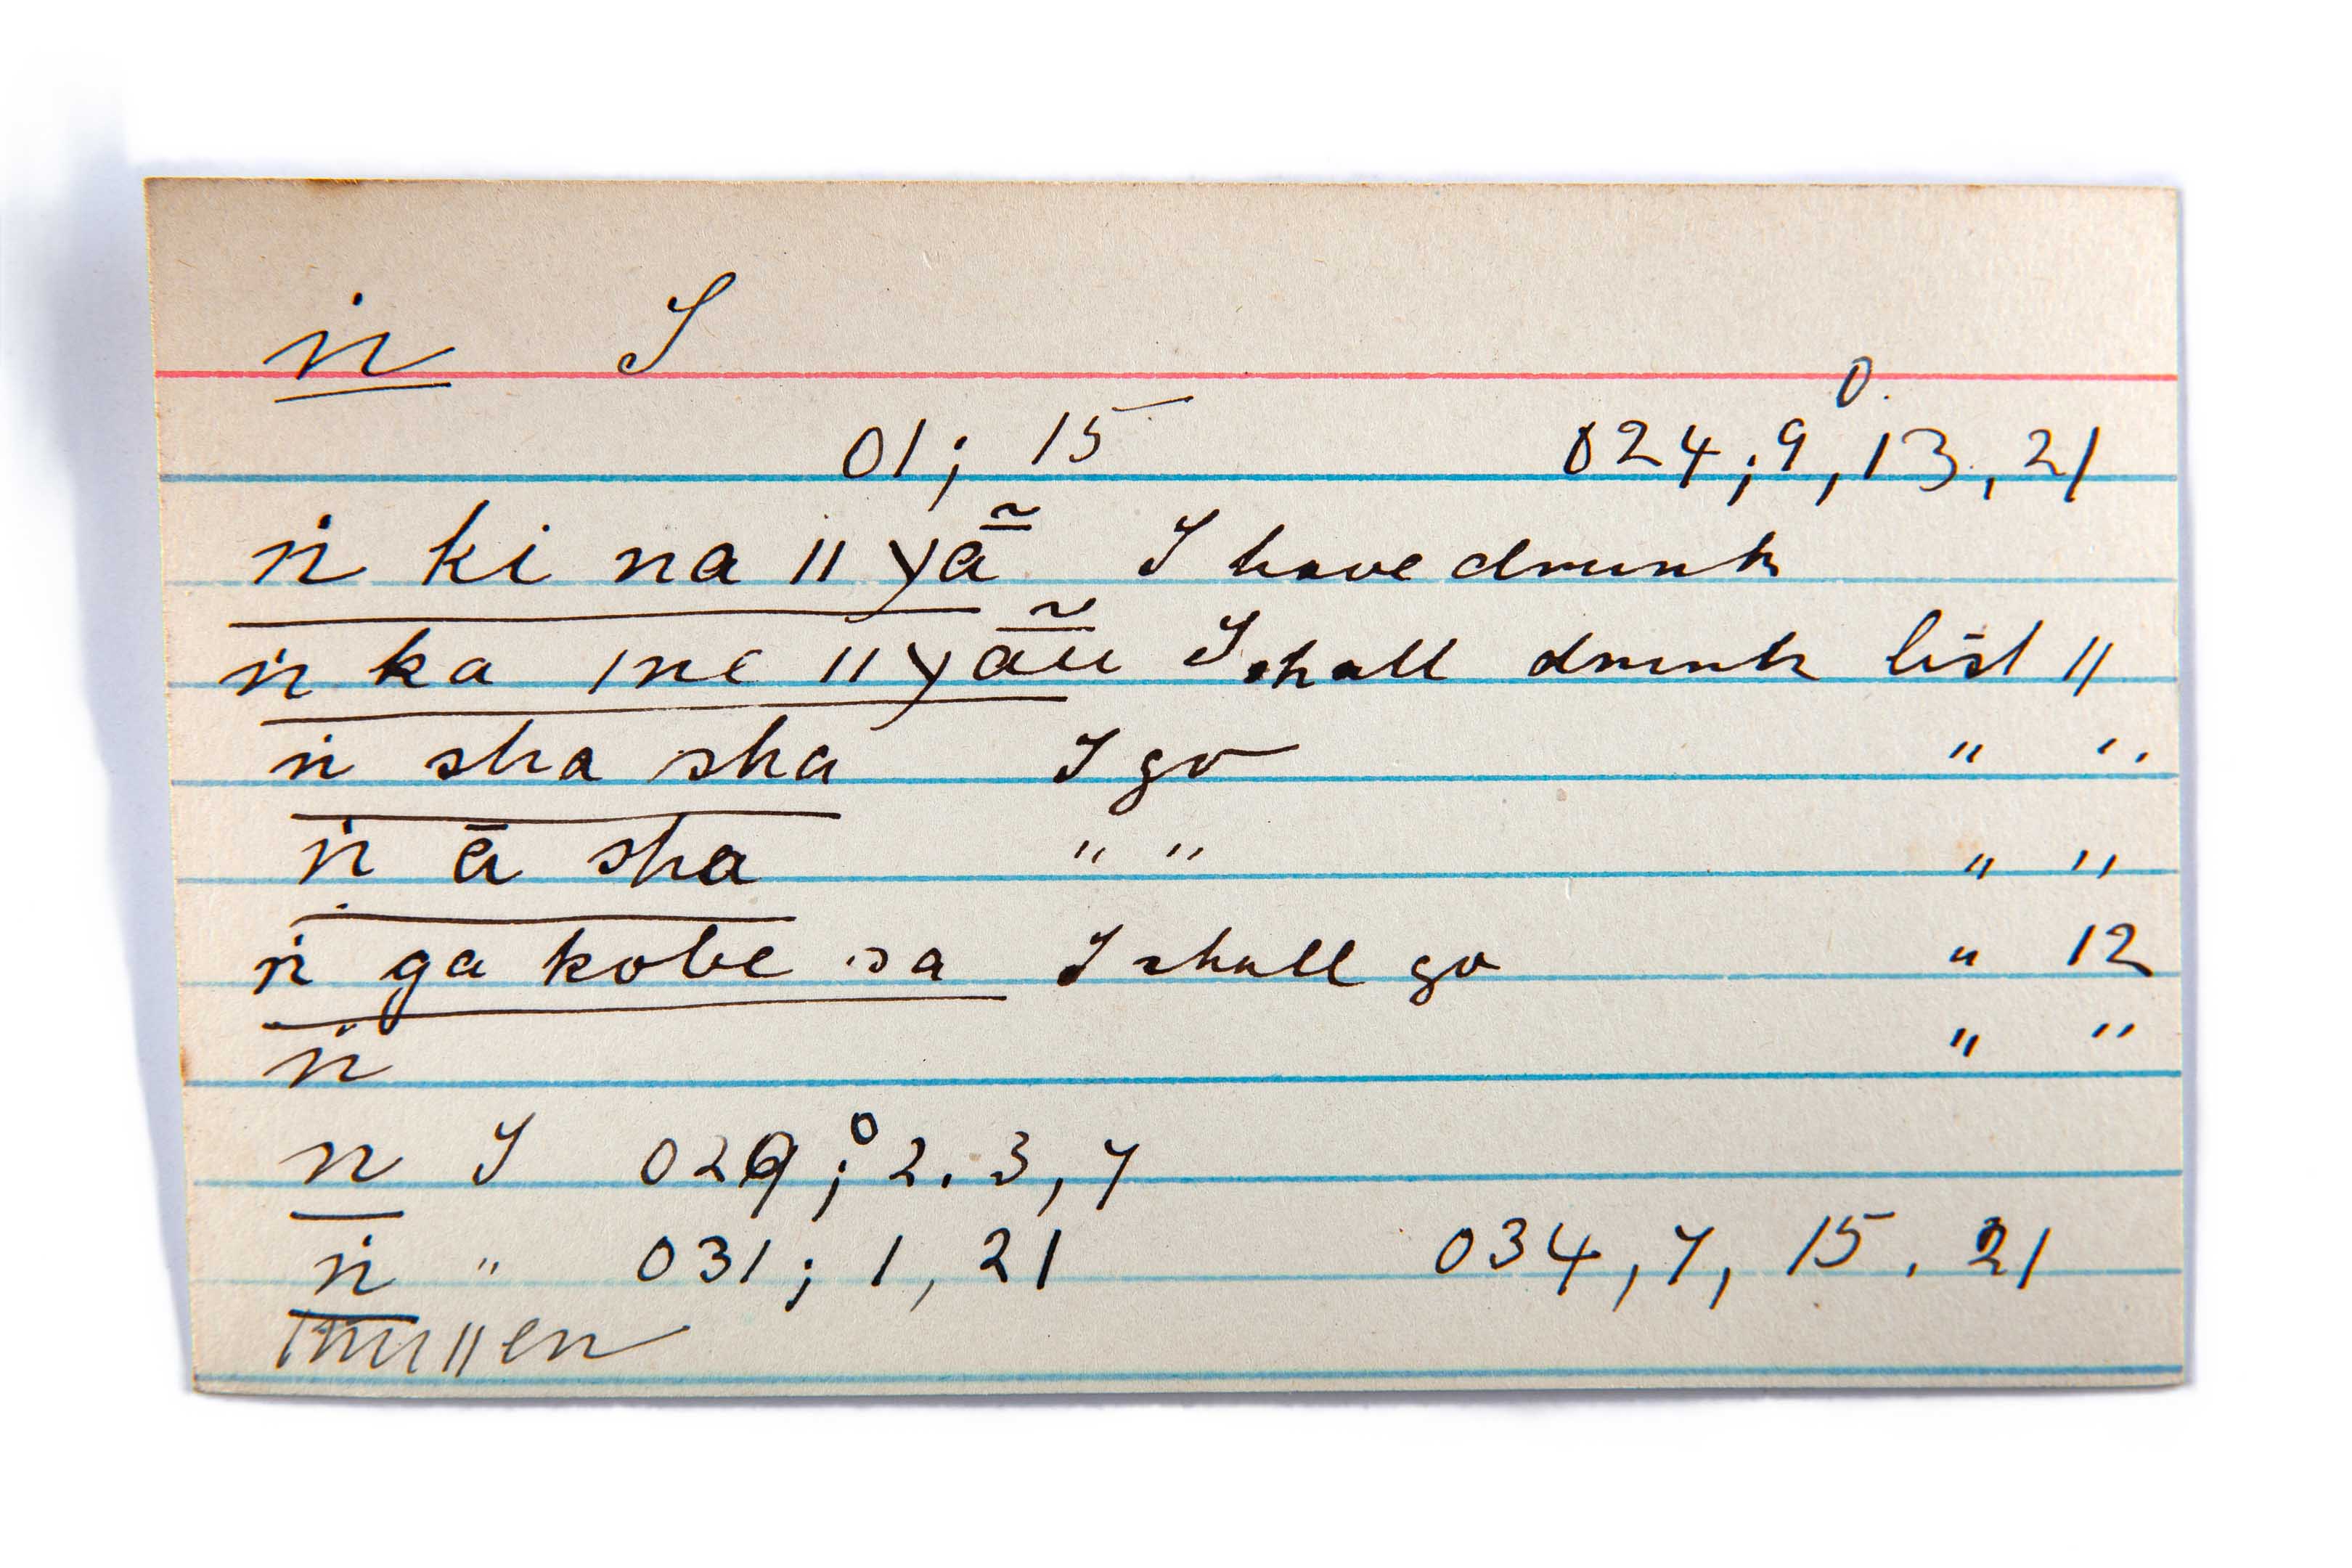 ṅ I
01; 15 024; 9⁰, 13, 21
ṅ ki na ǁ ɣã̄ I have drunk
ṅ ka me ǁ ɣã̄u I shall drink list 11
ṅ sha sha I go " "
ṅ ā sha " " " "
ṅ ga kobe sa I shall go " 12
ṅ " "
n I 029;⁰ 2. 3, 7
ṅ " 031; 1, 21 034, 7, 15. 21